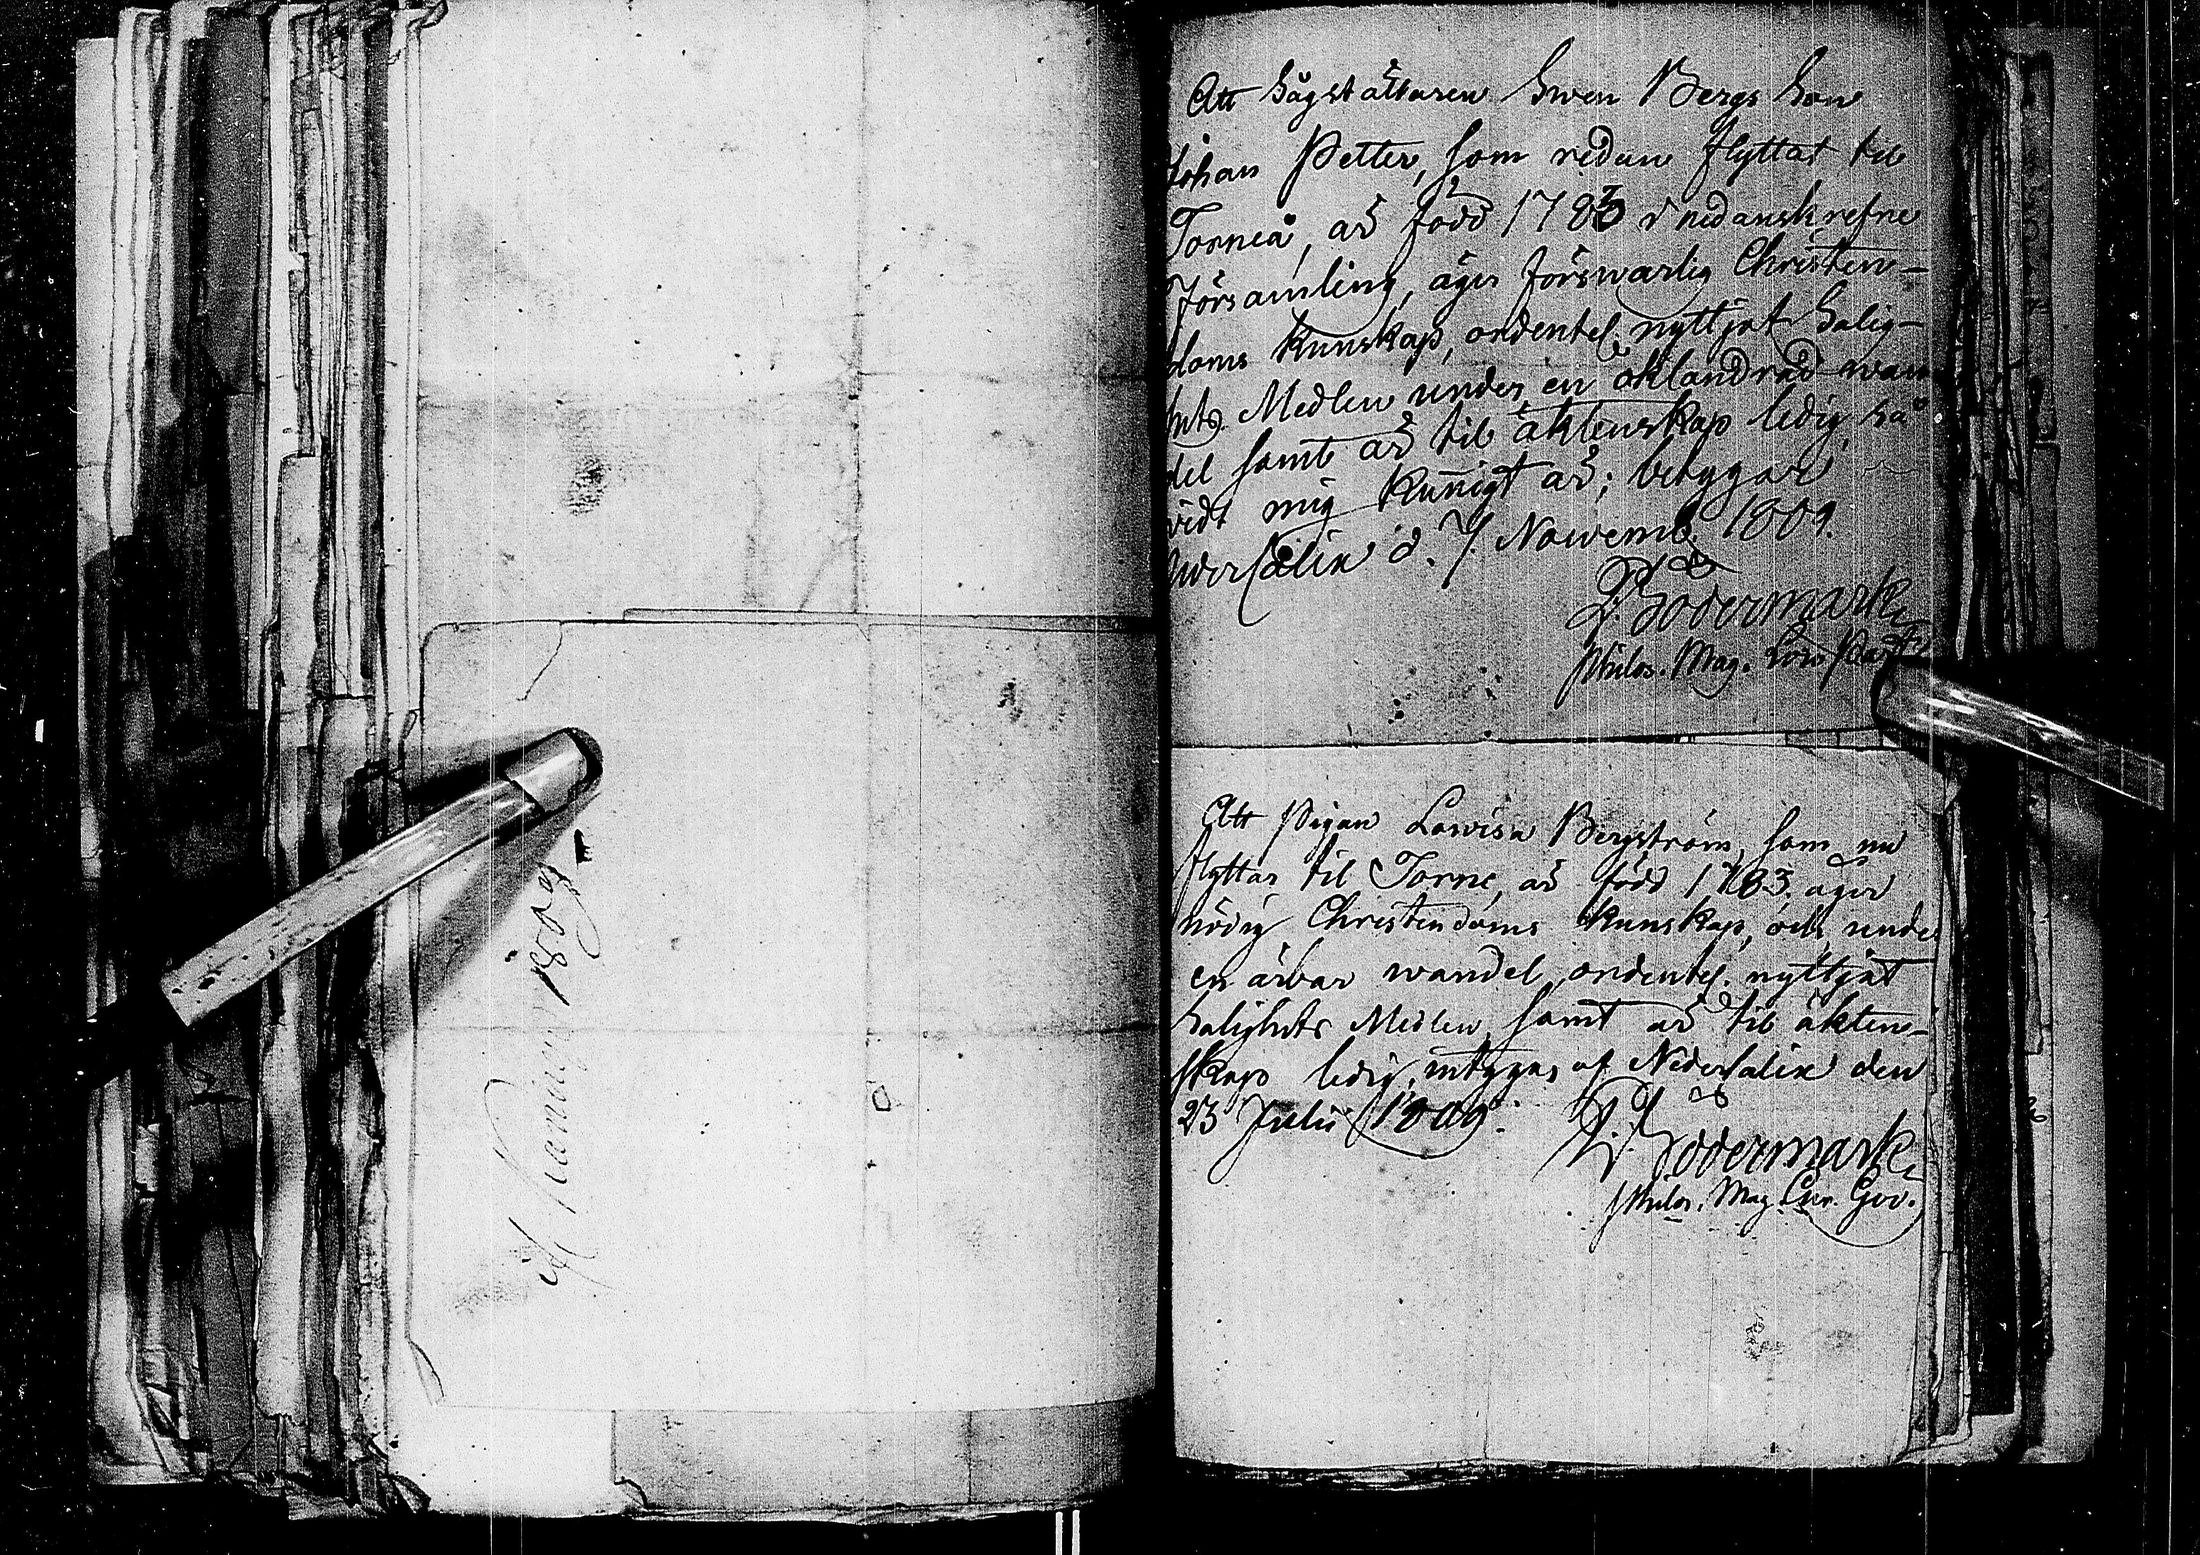 Att Sågställaren Swen Bergs Son
Johan Petter, som redan flyttat til
Torneå, är född 1783 i nedanskrefne
Församling, äger förswarlig Christen-
doms Kunskap, ordentel. nyttjat Salig-
hts Medlen under en oklandrad wan
del samt är til äktenskap ledig, så
vidt mig kunnigt är; betygar
d. 7. Novemb. 1809.
Bodermark
Philos. Mag.
Att Pigan Lowisa Bergström, som nu
flyttar til Torne, är född 1783, äger
nödig Christendoms Kunskap, och unde
en ärbar wandel, ordentel. nyttjat
Salighets Medlen, samt är til äkten-
skap ledig, intygas af Nedersalix den
23 Julii 1809.
Bodermark
Philos. Mag.
1809